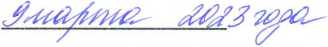 9 марта 2023 года